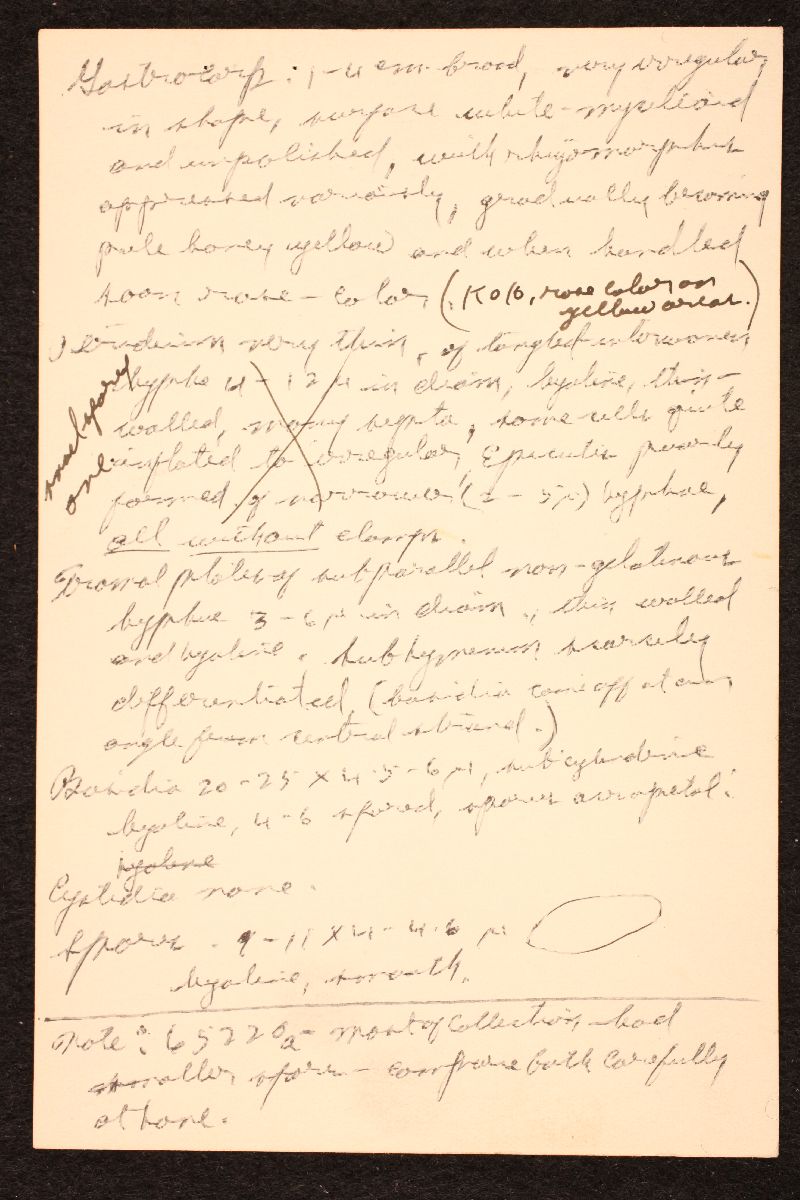 Gastrocarp: 1-4 cm broad, very irregular
in shape, surface white-mycelioid
and unpolished, with rhizomorphs
appressed variously, gradually becoming
pale honey yellow and when handled
soon rose-color. (KOH, rose color on
yellow areas.)
Peridium very thin, of tangled-interwoven
hyphae 4-12 µ in diam, hyaline, thin-
walled, many septa, some cells quite
inflated to irregular, Epicutis poorly
formed of narrower (2-5µ) hyphae,
all without clamps.
small spored
one
Tramal plates of subparallel non-gelatinous
hyphae 3-6 µ in diam., thin walled
and hyaline. Subhymenium scarcely
differentiated, (basidia come off at an
angle from central strand.)
Basidia 20-25 X 4.5-6 µ, subcylindric
hyaline, 4-6 spored, spores acropetal.
hyaline
Cystidia none.
Spores - 9-11 X 4-4.6 µ
hyaline, smooth.
Note: 65220a- most of collection had
smaller spores - compare both carefully
at home.